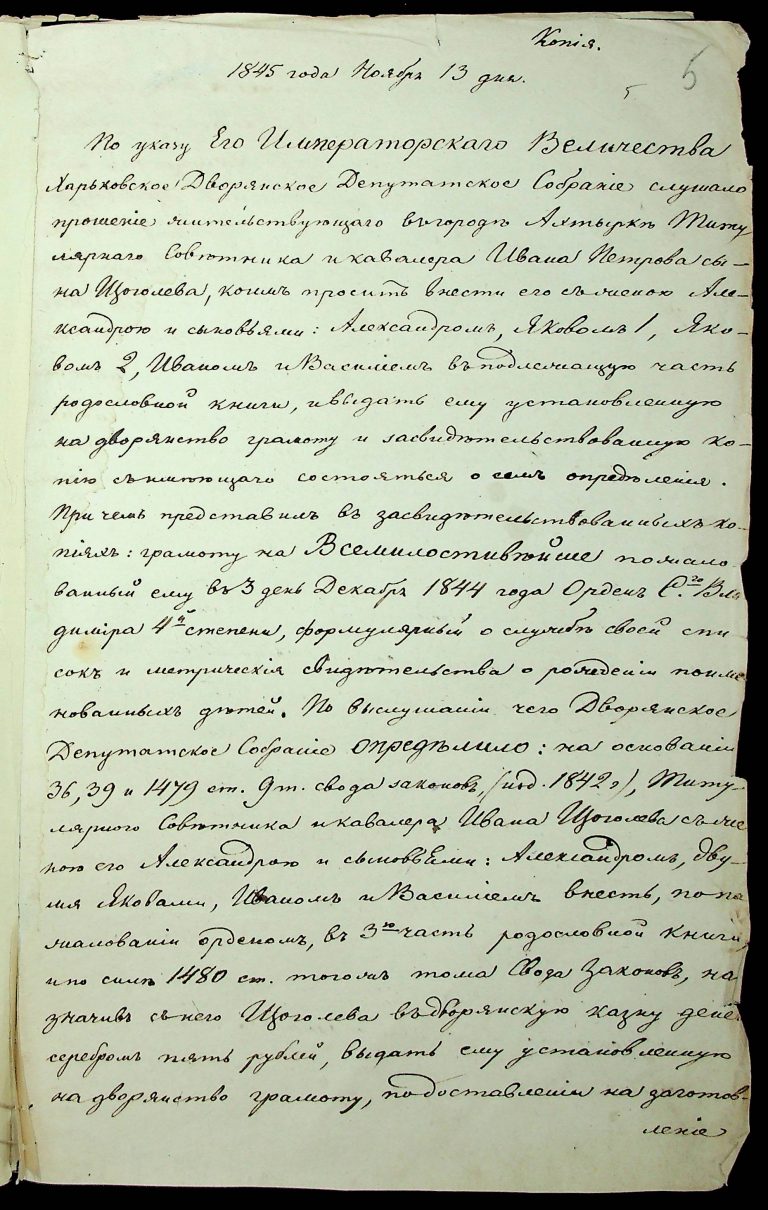 Копія.
5
1845 года Ноября 13 дня.
По указу Его Императорскаго Величества
Харьковское Дворянское Депутатское Собраніе слушало
прошеніе жительствующаго въ городѣ Ахтыркѣ Титу-
лярнаго Совѣтника и кавалера Ивана Петрова сы-
на Щоголева, коимъ проситъ внести его съ женою Але-
ксандрою и сыновьями: Александромъ, Яковомъ 1, Яко-
вомъ 2, Иваномъ и Василіемъ въ подлежащую часть
родословной книги, и выдать ему установленную
на дворянство грамоту и засвидѣтельствованную ко-
пію съ имѣющаго состояться о семъ опредѣленія.
При чемъ представилъ въ засвидѣтельствованныхъ ко-
піяхъ: грамоту на Всемилостивѣйше пожало-
ванный ему въ 3 день Декабря 1844 года Орденъ С.го Вла
диміра 4й степени, формулярный о службѣ своей спи
сокъ и метрическія свидѣтельства о рожденіи поиме
нованныхъ дѣтей. По выслушаніи чего Дворянское
Депутатское Собраніе опредѣлило: на основаніи
36, 39 и 1479 ст. 9 т. свода законовъ, (изд. 1842 г), Титу-
лярного Совѣтника и кавалера Ивана Щоголева съ же
ною его Александрою и сыновьями: Александромъ, дву-
мя Яковами, Иваномъ и Василіемъ внесть, по по
жалованіи орденомъ, въ 3ю часть родословной книги,
и по силѣ 1480 ст. тогожъ тома Свода Законовъ, на
значивъ съ него Щоголева въ дворянскую казну дене
серебромъ пять рублей, выдать ему установленную
на дворянство грамоту, по доставленіи на заготов-
леніе